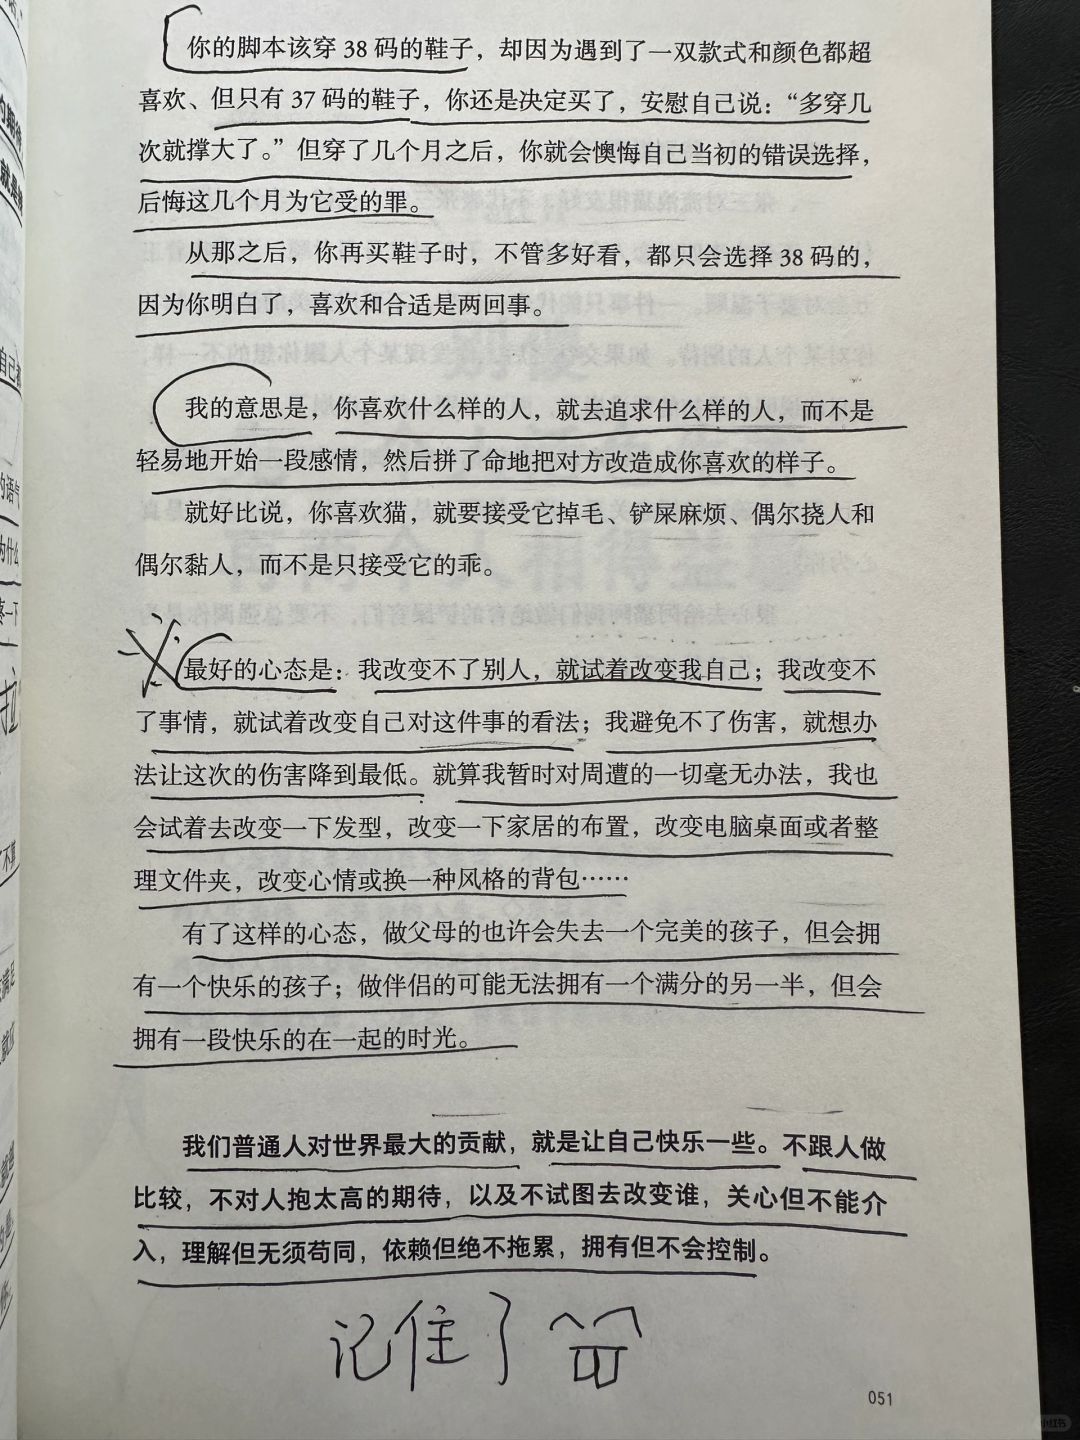 你的脚本该穿 38 码的鞋子，却因为遇到了一双款式和颜色都超
喜欢、但只有 37 码的鞋子，你还是决定买了，安慰自己说：“多穿几
次就撑大了。”但穿了几个月之后，你就会懊悔自己当初的错误选择，
后悔这几个月为它受的罪。
从那之后，你再买鞋子时，不管多好看，都只会选择 38 码的，
因为你明白了，喜欢和合适是两回事。
我的意思是，你喜欢什么样的人，就去追求什么样的人，而不是
轻易地开始一段感情，然后拼了命地把对方改造成你喜欢的样子。
就好比说，你喜欢猫，就要接受它掉毛、铲屎麻烦、偶尔挠人和
偶尔黏人，而不是只接受它的乖。
最好的心态是：我改变不了别人，就试着改变我自己；我改变不
了事情，就试着改变自己对这件事的看法；我避免不了伤害，就想办
法让这次的伤害降到最低。就算我暂时对周遭的一切毫无办法，我也
会试着去改变一下发型，改变一下家居的布置，改变电脑桌面或者整
理文件夹，改变心情或换一种风格的背包……
有了这样的心态，做父母的也许会失去一个完美的孩子，但会拥
有一个快乐的孩子；做伴侣的可能无法拥有一个满分的另一半，但会
拥有一段快乐的在一起的时光。
我们普通人对世界最大的贡献，就是让自己快乐一些。不跟人做
比较，不对人抱太高的期待，以及不试图去改变谁，关心但不能介
入，理解但无须苟同，依赖但绝不拖累，拥有但不会控制。
记住了
051
小红书